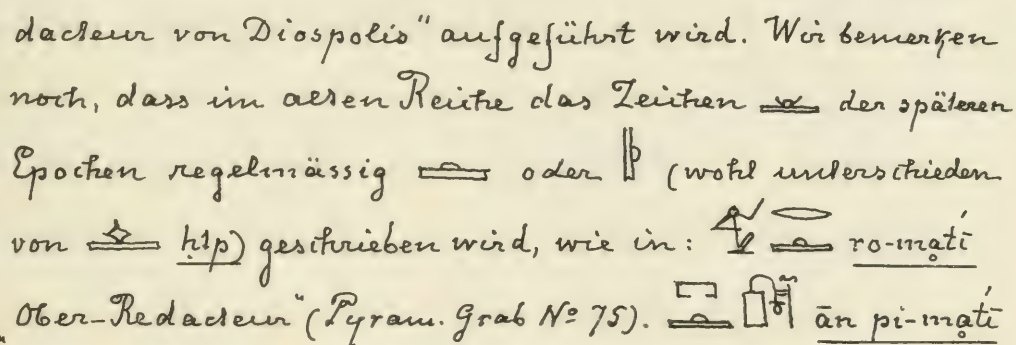 dacteur von Diospolis“ aufgeführt wird. Wir bemerken
noch, dass im alten Reiche das Zeichen der späteren
Epochen regelmässig oder (wohl unterschieden
von ḥtp) geschrieben wird, wie in: ro-maṭí
Ober-Redacteur“ (Pyram. Grab Nº 75). ān pi-maṭí